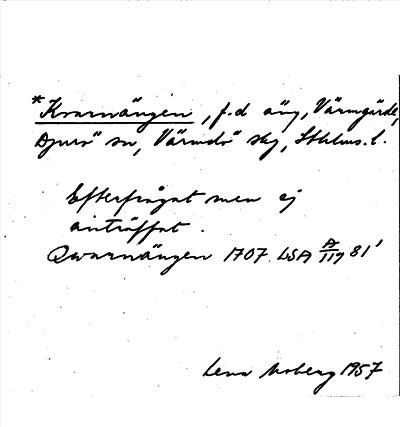 *Kvarnängen, f.d äng, Värmgärde,
Djurö sn, Värmdö skg, Sthlms. l.
Efterfrågat men ej
anträffat.
Qwarnängen 1707 LSA A/119 81'
Lena Moberg 1957